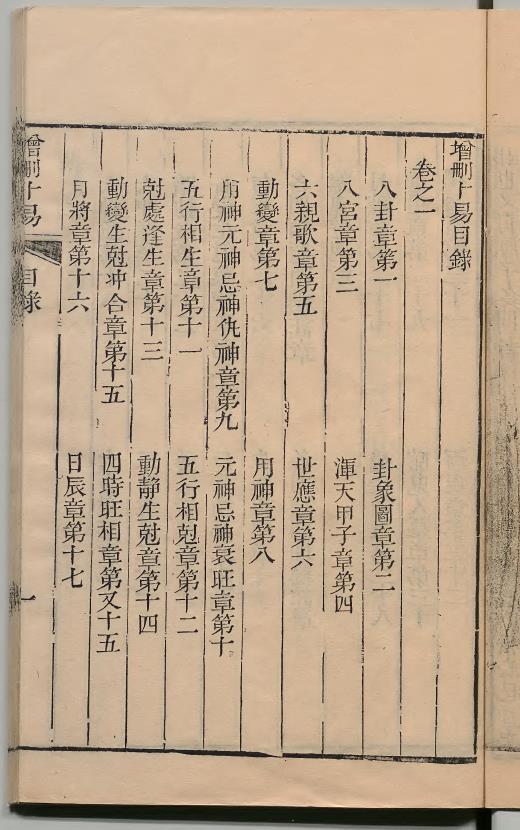 增刪卜易目錄
卷之一
八卦章第一
卦象圖章第二
八宮章第三
渾天甲子章第四
六親歌章第五
世應章第六
動變章第七
用神章第八
用神元神忌神仇神章第九
元神忌神衰旺章第十
五行相生章第十一
五行相尅章第十二
尅處逢生章第十三
動靜生尅章第十四
動變生尅冲合章第十五
四時旺相章第又十五
月將章第十六
日辰章第十七
增刪卜易
目錄
一